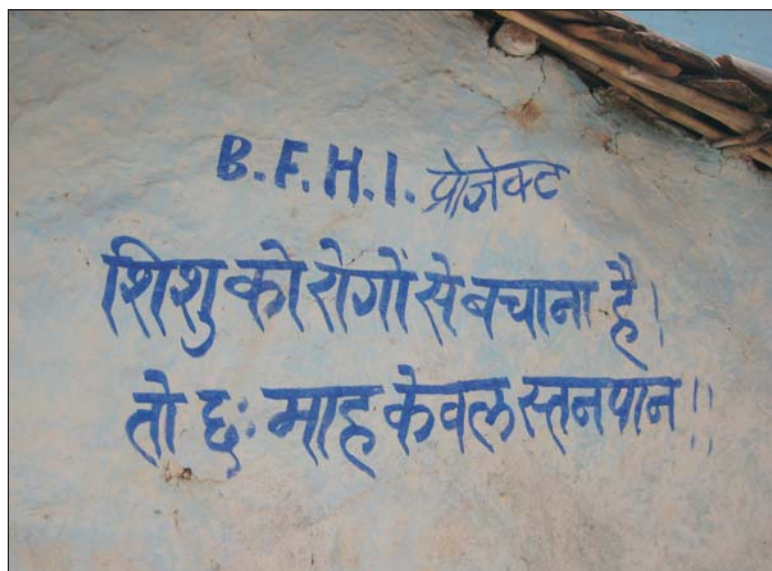 B.F.H.I. प्रोजेक्ट
शिशु को रोगों से बचाना है।
तो छः माह केवल स्तनपान॥